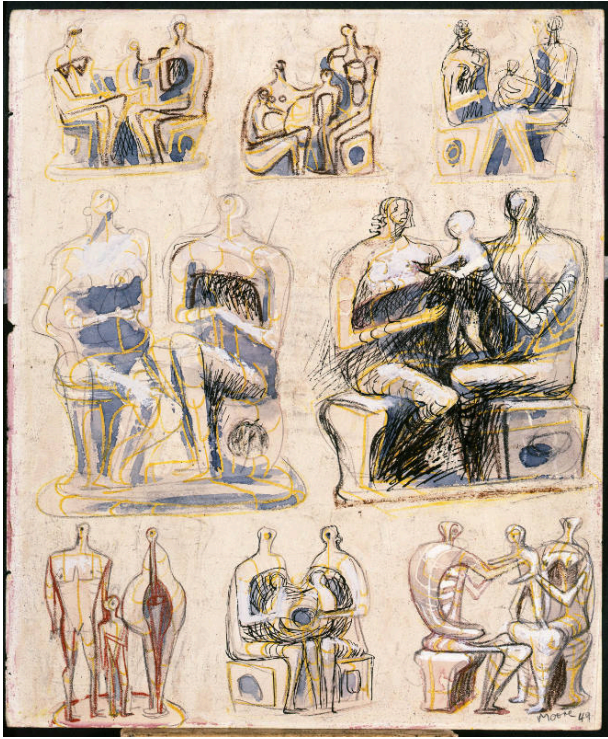 MOORE 49.